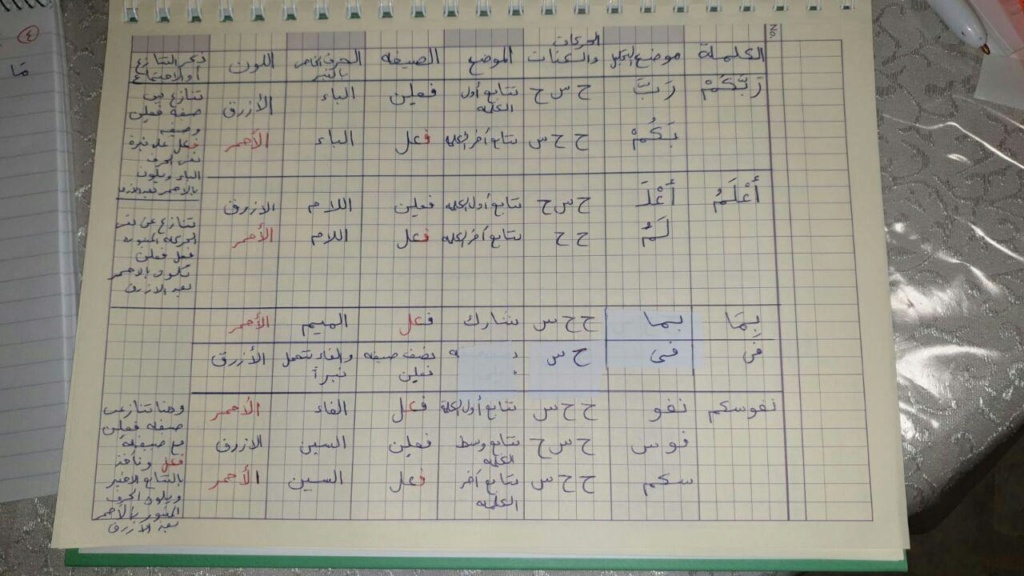 الكلمة موضع التحليل الحركات والسكنات الموضع الصيغة الحرف المنبر اللون ذكر التنازع أو الاجتماع
رَبَّكُمْ رَبَّ ح س ح تتابع أول الكلمة فعلن الباء الأزرق
بَكُمْ ح ح س تتابع أخر الكلمة فعل الباء الأحمر
تنازع بين
صيغة فعلن
وصيغة
فعل على نبرة
نفس الحرف
الباء ويلون
بالأحمر بعد الأزرق
أَعْلَمُ أَعْلَ ح س ح تتابع أول الكلمة فعلن اللام الأزرق
لَمُ ح ح تتابع أخر الكلمة فعل اللام الأحمر
تنازع على نفس
الحركة المنبورة
فعل فعلن
تكون بالأحمر
بعد الأزرق
بِمَا بما ح ح س تشارك فعل الميم الأحمر
في فى ح س نصف صيغة فعلن والفاء تحمل نبراً الأزرق
نفوسكم نفو ح ح س تتابع أول الكلمة فعل الفاء الأحمر
فوس ح س ح تتابع وسط الكلمة فعلن السين الأزرق
سكم ح ح س تتابع أخر الكلمة فعل السين الأحمر
وهنا تنازعت
صيغة فعلن
مع صيغة
فعل
بالتتابع الأخير
ويلون الحرف
المنبور بالأحمر
بعد الأزرق
مَا